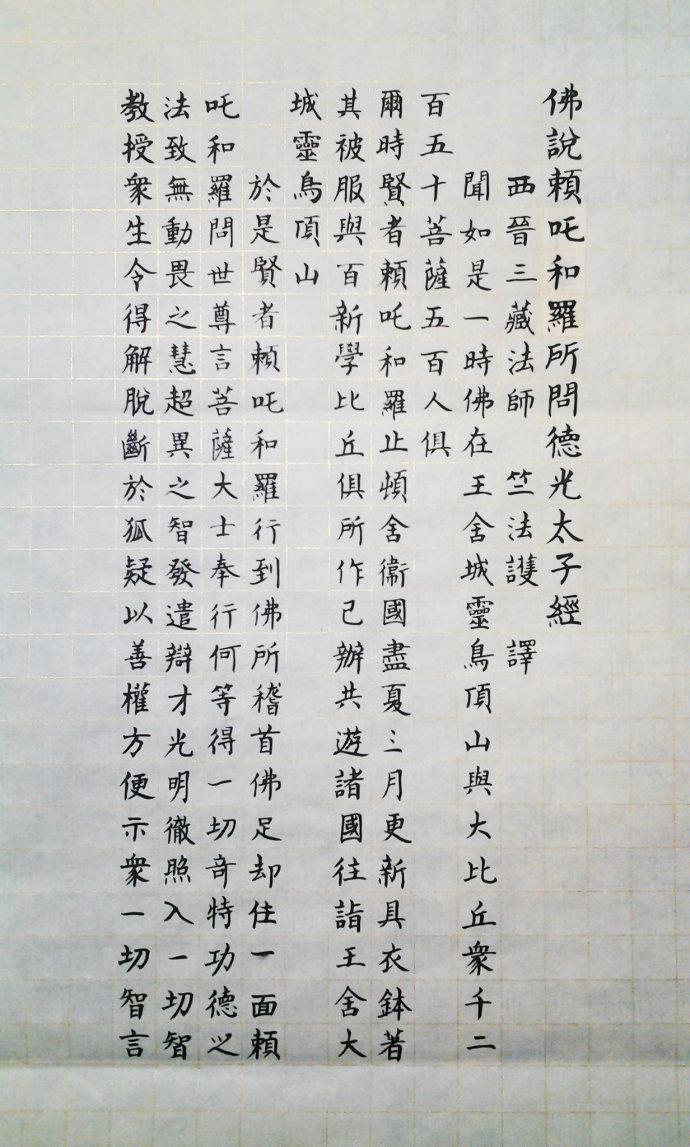 佛說頼吒和羅所問德光太子經
西晉三藏法師 竺法護 譯
聞如是一時佛在王舍城靈鳥頂山與大比丘衆千二
百五十菩薩五百人俱
爾時賢者頼吒和羅止頓舍衞國盡夏三月更新具衣鉢著
其被服與百新學比丘俱所作已辦共遊諸國往詣王舍大
城靈鳥頂山
於是賢者頼吒和羅行到佛所稽首佛足却住一面頼
吒和羅問世尊言菩薩大士奉行何等得一切奇特功德之
法致無動畏之慧超異之智發遣辯才光明徹照入一切智
教授衆生令得解脫斷於狐疑以善權方便示衆一切智言